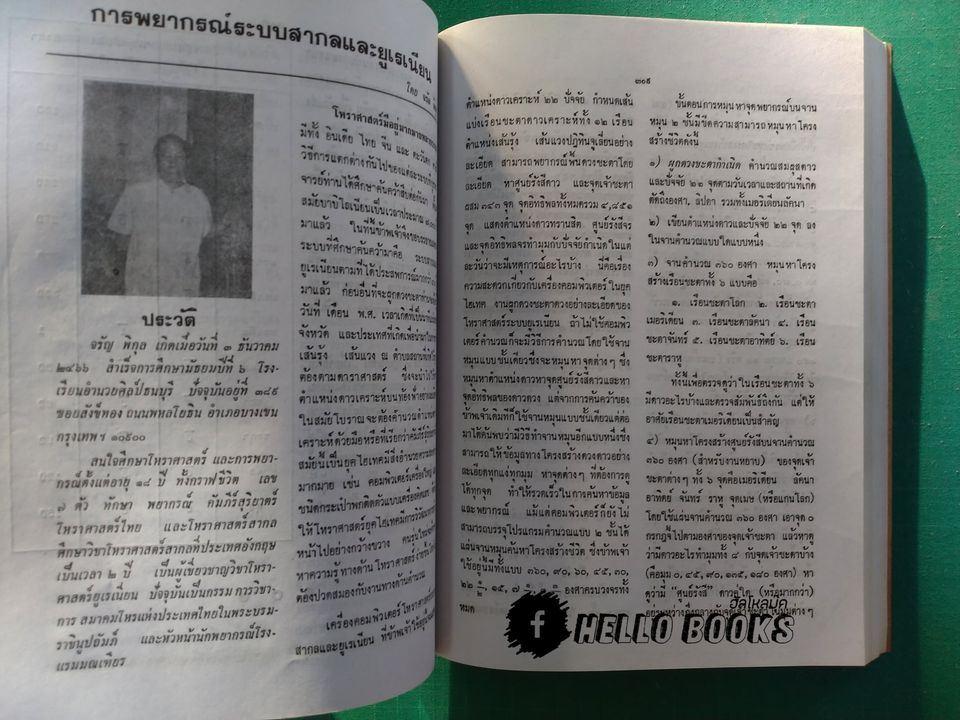 การพยากรณ์ระบบสากลและยูเรเนียน
โดย จรัญ
ประวัติ
จรัญ พิกุล เกิดเมื่อวันที่ ๓ ธันวาคม
๒๔๖๖ สำเร็จการศึกษามัธยมปีที่ ๖ โรง-
เรียนอำนวยศิลป์ธนบุรี ปัจจุบันอยู่ที่ ๓๘๙
ซอยสังข์ทอง ถนนพหลโยธิน อำเภอบางเขน
กรุงเทพฯ ๑๐๙๐๐
สนใจศึกษาโหราศาสตร์ และการพยา-
กรณ์ตั้งแต่อายุ ๑๘ ปี ทั้งกราฟชีวิต เลข
๗ ตัว ทักษา พยากรณ์ คัมภีร์สุริยาตร์
โหราศาสตร์ไทย และโหราศาสตร์สากล
ศึกษาวิชาโหราศาสตร์สากลที่ประเทศอังกฤษ
เป็นเวลา ๒ ปี เป็นผู้เชี่ยวชาญวิชาโหรา-
ศาสตร์ยูเรเนียน ปัจจุบันเป็นกรรมการวิชา-
การ สมาคมโหรแห่งประเทศไทยในพระบรม-
ราชินูปถัมภ์ และหัวหน้านักพยากรณ์โรง-
แรมมณเฑียร
โหราศาสตร์มีอยู่มากมายหลาย
มีทั้ง อินเดีย ไทย จีน และ ตะวันตก
วิธีการแตกต่างกันไปของแต่ละระบบ
จารย์ท่านได้ศึกษาค้นคว้าสืบต่อกันมา
สมัยบาบิโลเนียนเป็นเวลาประมาณ
มาแล้ว ในที่นี้ข้าพเจ้าจึงขอบรรยาย
ระบบที่ศึกษาค้นคว้ามาคือ ระบบสากล
ยูเรเนียนตามที่ได้ประสพการณ์มากว่า
มาแล้ว ก่อนอื่นที่จะผูกดวงชะตา
วันที่ เดือน พ.ศ. เวลาเกิดที่
จังหวัด และประเทศที่เกิดเพื่อนำมา
เส้นรุ้ง เส้นแวง ณ ตำบลสถานที่
ต้องตามดาราศาสตร์ ซึ่งจะนำไป
ตำแหน่งดาวเคราะห์บนท้องฟ้า
ในสมัยโบราณจะต้องคำนวณตำแหน่ง
เคราะห์ด้วยมือหรือที่เรียกว่าคัมภีร์
สมัยนี้เป็นยุคไฮเทคมีสิ่งอำนวยความ
มากมาย เช่น คอมพิวเตอร์เครื่องใหญ่
ชนิดกระเป๋าพกติดตัวแบบเครื่องคิดเลข
ให้โหราศาสตร์ยุคไฮเทคมีการวิวัฒนา
หน้าไปอย่างกว้างขวาง คนรุ่นใหม่
หาความรู้ทางด้าน โหราศาสตร์ง่าย
ต้องปวดสมองกับงานทางด้านคำนวณ
เครื่องคอมพิวเตอร์ โหราศาสตร์
สากลและยูเรเนียน ที่ข้าพเจ้าใช้อยู่
๓๐๙
ตำแหน่งดาวเคราะห์ ๒๒ ปัจจัย กำหนดเส้น
แบ่งเรือนชะตาดาวเคราะห์ทั้ง ๑๒ เรือน
ตำแหน่งเส้นรุ้ง เส้นแวงปฏิทินจูเลี่ยนอย่าง
ละเอียด สามารถพยากรณ์พื้นดวงชะตาโดย
ละเอียด หาศูนย์รังสีดาว และจุดเจ้าชะตา
ผสม ๓๔๓ จุด จุดอิทธิพลทั้งหมดรวม ๔,๘๕๑
จุด แสดงตำแหน่งดาวทรานสิต ศูนย์รังสีจร
และจุดอิทธิพลจรทำมุมกับปัจจัยกำเนิดในแต่
ละวันว่าจะมีเหตุการณ์อะไรบ้าง นี่คือเรื่อง
ความสะดวกเกี่ยวกับเครื่องคอมพิวเตอร์ ในยุค
ไฮเทค งานผูกดวงชะตาดวงอย่างละเอียดของ
โหราศาสตร์ระบบยูเรเนียน ถ้าไม่ใช้คอมพิว
เตอร์คำนวณก็จะมีวิธีการคำนวณ โดยใช้จาน
หมุนแบบชั้นเดียวซึ่งจะหมุนหาจุดต่างๆ ซึ่ง
หมุนหาตำแหน่งดาวหาจุดศูนย์รังสีดาวและหา
จุดอิทธิพลของดาวดวง แต่จากการค้นคว้าของ
ข้าพเจ้าเดิมทีก็ใช้จานหมุนแบบชั้นเดียวแต่ต่อ
มาได้ค้นพบว่ามีวิธีทำจานหมุนอีกแบบหนึ่งซึ่ง
สามารถให้ข้อมูลทางโครงสร้างดวงดาวอย่าง
ละเอียดทุกแง่ทุกมุม หาจุดต่างๆ ที่ต้องการดู
ได้ทุกจุด ทำให้รวดเร็วในการค้นหาข้อมูล
และพยากรณ์ แม้แต่คอมพิวเตอร์ก็ยังไม่
สามารถบรรจุโปรแกรมคำนวณแบบ ๒ ชั้นได้
แผ่นจานหมุนค้นหาโครงสร้างชีวิต ซึ่งข้าพเจ้า
ใช้อยู่นี้มีทั้งแบบ ๓๖๐, ๙๐, ๖๐, ๔๕, ๓๐,
๒๒ ๑/๒, ๑๕, ๗ องศาครบวงจรทั้ง
หมด
ขั้นตอนการหมุนหาจุดพยากรณ์บนจาน
หมุน ๒ ชั้นมีขีดความสามารถหมุนหาโครง
สร้างชีวิตดังนี้
๑) ผูกดวงชะตากำเนิด คำนวณสมผุสดาว
และปัจจัย ๒๒ จุดตามวันเวลาและสถานที่เกิด
ตัดถึงองศา, ลิปดา รวมทั้งเมอริเดียนลัคนา
๒) เขียนตำแหน่งดาวและปัจจัย ๒๒ จุด ลง
ในจานคำนวณแบบใดแบบหนึ่ง
๓) จานคำนวณ ๓๖๐ องศา หมุนหาโครง
สร้างเรือนชะตาทั้ง ๖ แบบคือ
๑. เรือนชะตาโลก ๒. เรือนชะตา
เมอริเดียน ๓. เรือนชะตาลัคนา ๔. เรือน
ชะตาจันทร์ ๕. เรือนชะตาอาทิตย์ ๖. เรือน
ชะตาราหู
ทั้งนี้เพื่อตรวจดูว่าในเรือนชะตาทั้ง ๖
มีดาวอะไรบ้างและตรวจสัมพันธ์ถึงกัน แต่ให้
อาศัยเรือนชะตาเมอริเดียนเป็นสำคัญ
๔) หมุนหาโครงสร้างศูนย์รังสีบนจานคำนวณ
๓๖๐ องศา (สำหรับงานหยาบ) ของจุดเจ้า
ชะตาต่างๆ ทั้ง ๖ จุดคือเมอริเดียน ลัคนา
อาทิตย์ จันทร์ ราหู จุดเมษ (หรือแกนโลก)
โดยใช้แผ่นจานคำนวณ ๓๖๐ องศา เอาจุด ๐
กรกฎจี้ไปตามองศาของจุดเจ้าชะตา แล้วหาดู
ว่ามีดาวอะไรทำมุมทั้ง ๘ กับจุดเจ้าชะตาบ้าง
(คือมุม ๐, ๔๕, ๙๐, ๑๓๕, ๑๘๐ องศา) หา
ดูว่ามี "ศูนย์รังสี" ดาวคู่ใด (หรือมากกว่า)
อยู่ระหว่างกึ่งกลางกับจุดเจ้าชะตาในมุมต่างๆ
ฮัลโหลบุ๊ค
HELLO BOOKS